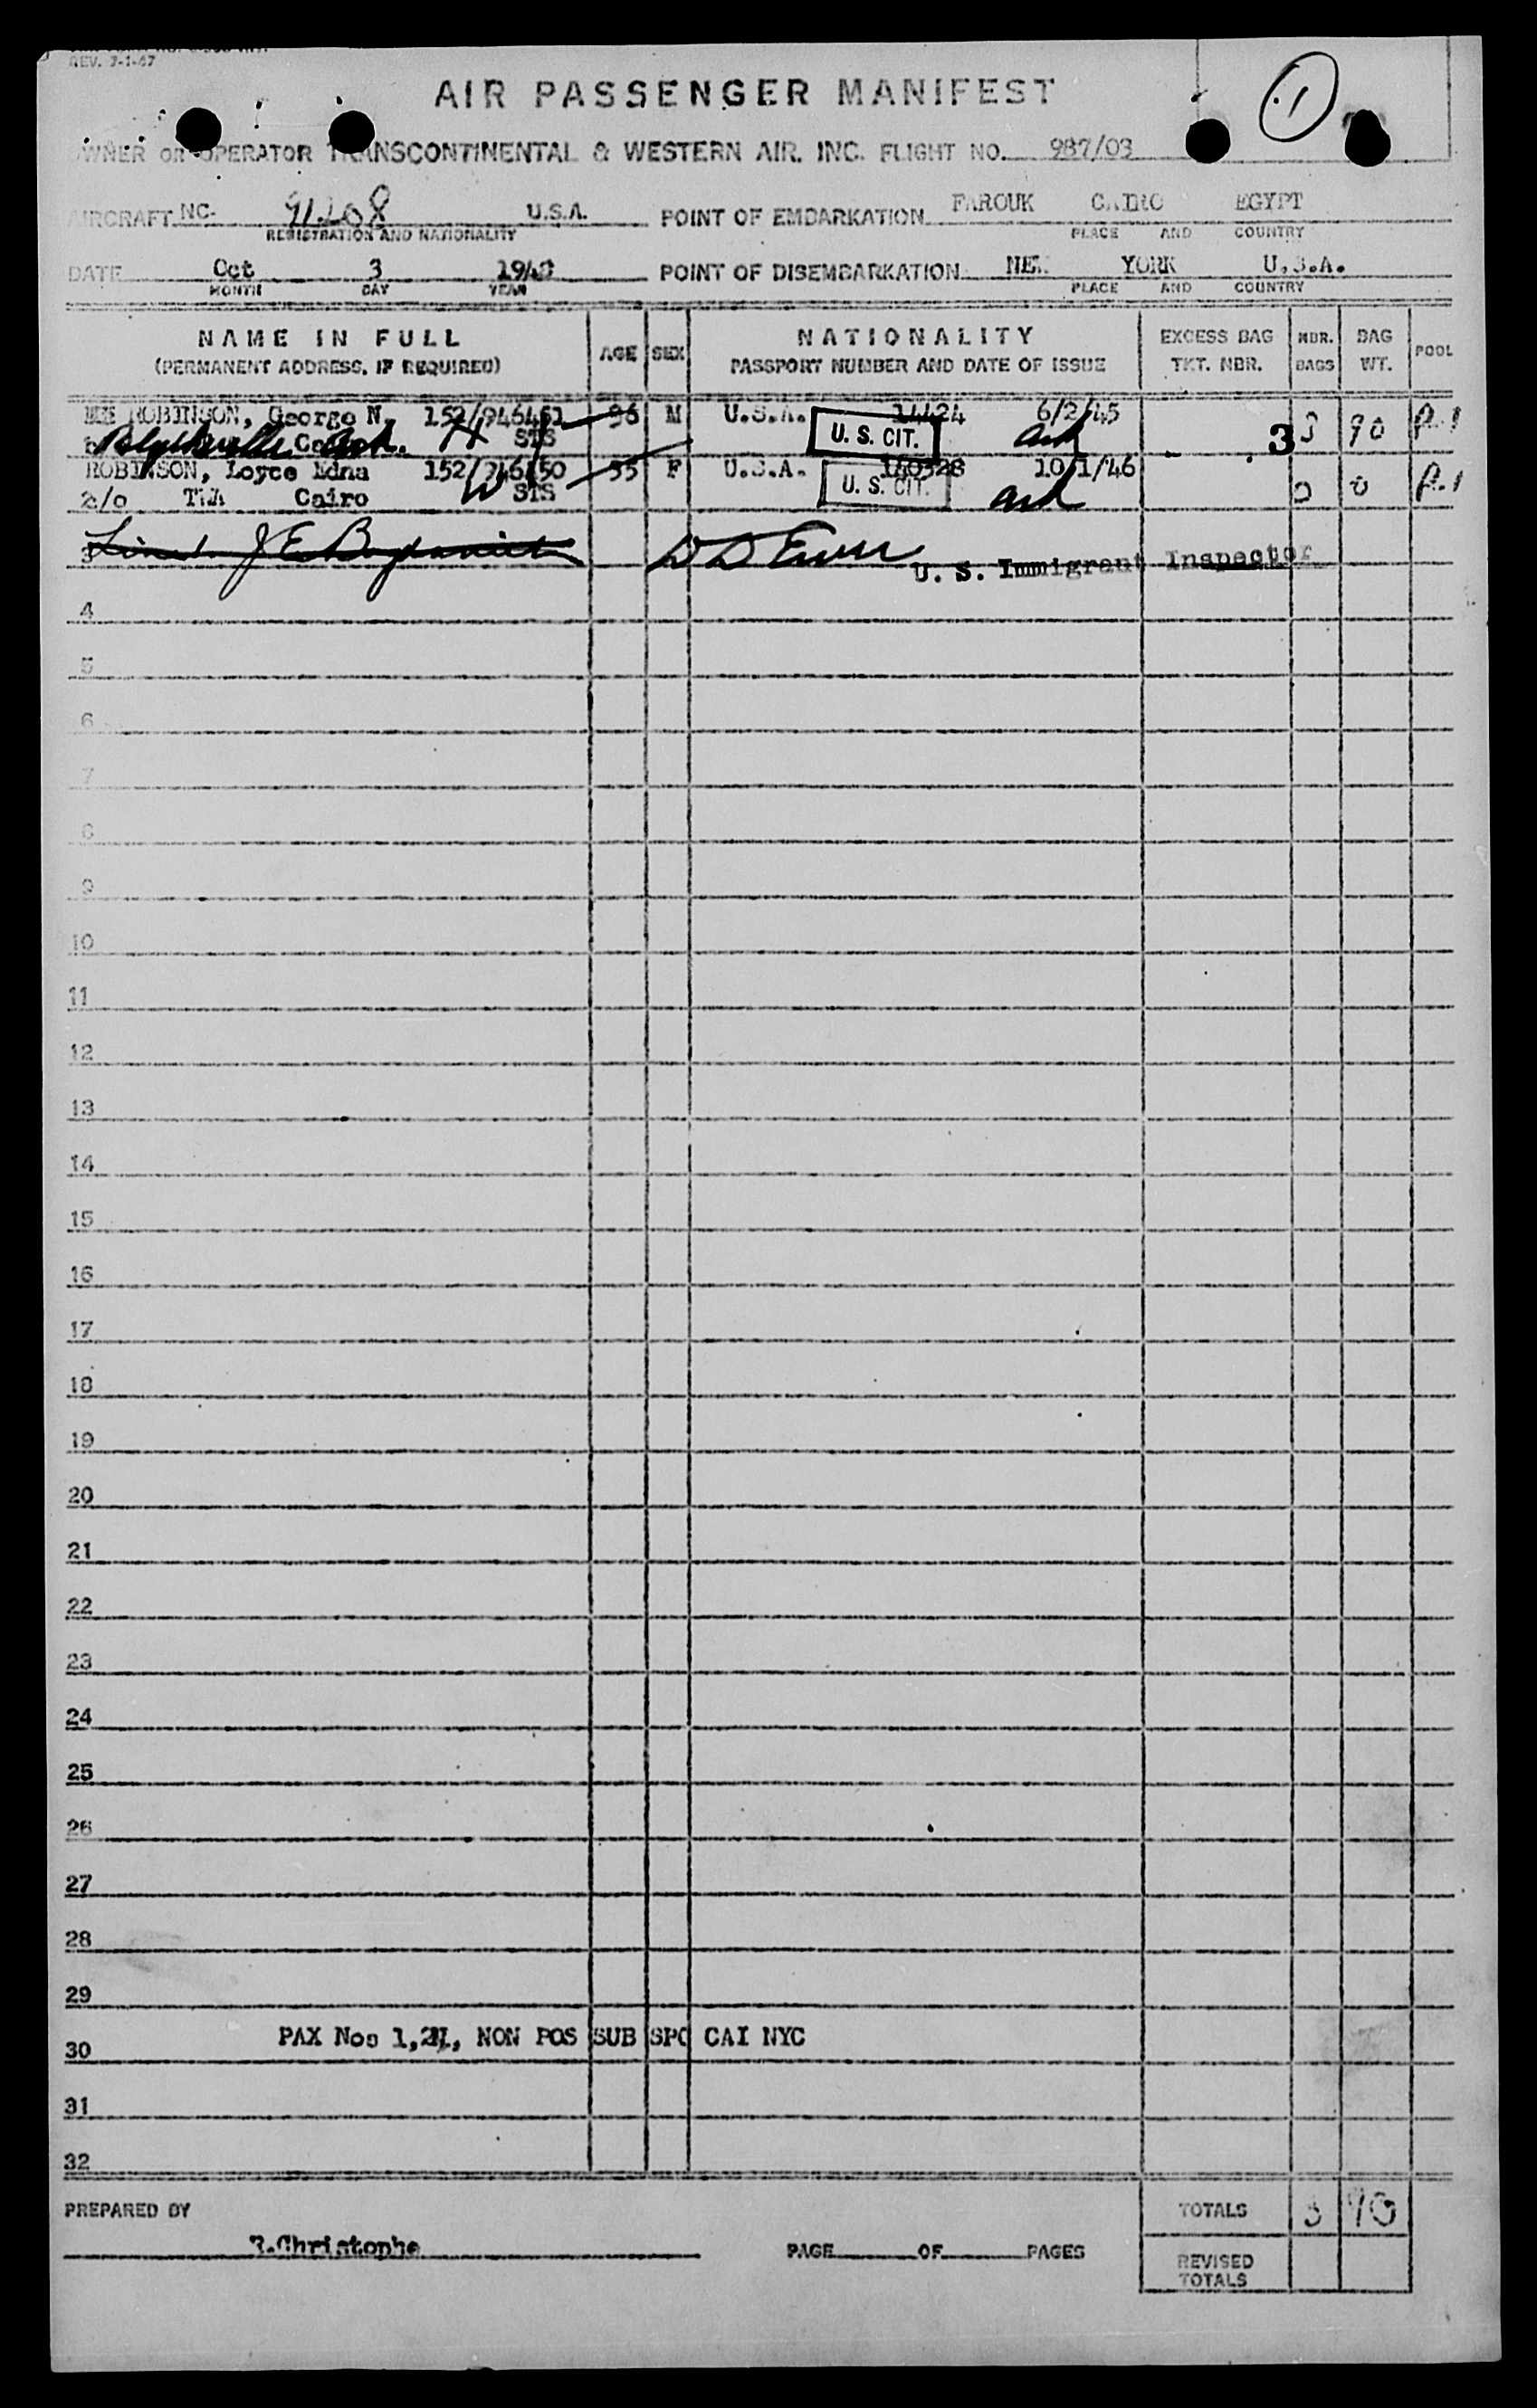 REV. 7-1-47
1
AIR PASSENGER MANIFEST
OWNER OR OPERATOR TRANSCONTINENTAL & WESTERN AIR, INC. FLIGHT NO. 987/03
AIRCRAFT NC- 91208 U.S.A. POINT OF EMBARKATION FAROUK CAIRO EGYPT
REGISTRATION AND NATIONALITY PLACE AND COUNTRY
DATE Oct 3 194 POINT OF DISEMBARKATION NEW YORK U.S.A.
MONTH DAY YEAR PLACE AND COUNTRY
NAME IN FULL AGE SEX NATIONALITY EXCESS BAG NBR. BAG POOL
(PERMANENT ADDRESS, IF REQUIRED) PASSPORT NUMBER AND DATE OF ISSUE TKT. NBR. BAGS WT.
ROBINSON, George N. 152/946451 36 M U.S.A. 14424 6/2/45 3 3 90 P.1
Blytheville Ark. H STS U. S. CIT. Ark
ROBINSON, Loyce Edna 152/946450 35 F U.S.A. 140328 10/1/46 0 0 P.1
c/o TWA Cairo W STS U. S. CIT. Ark
3 J E U. S. Immigrant Inspector
4
5
6
7
8
9
10
11
12
13
14
15
16
17
18
19
20
21
22
23
24
25
26
27
28
29
30 PAX Nos 1,2, NON POS SUB SPC CAI NYC
31
32
PREPARED BY TOTALS 3 90
R.Christophe PAGE OF PAGES
REVISED
TOTALS